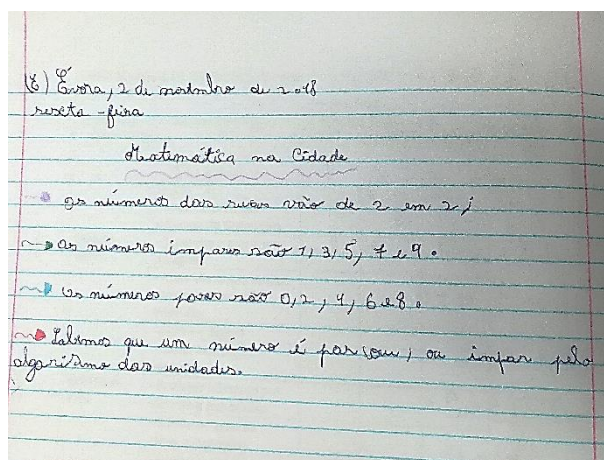 (E) Évora, 2 de novembro de 2018
sexta-feira
Matemática na Cidade
os números das ruas vão de 2 em 2;
os números impares são 1, 3, 5, 7 e 9.
os números pares são 0, 2, 4, 6 e 8.
Sabemos que um número é par (ou) ou impar pelo
algarismo das unidades.